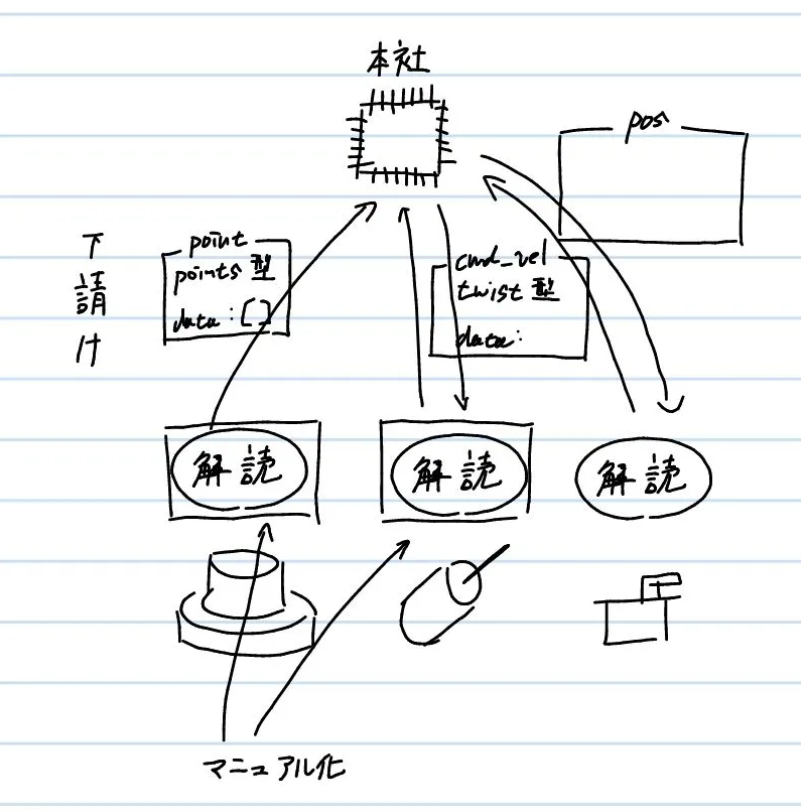 本社
pos
下請け
point
points 型
data:[ ]
cmd_vel
twist 型
data:
解読
解読
解読
マニュアル化